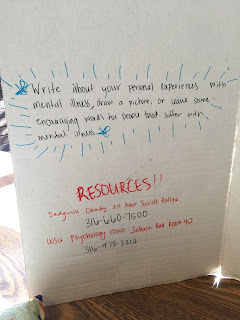 Write about your personal experiences with
mental illness, draw a picture, or leave some
encouraging words for people that suffer with
mental illness.
RESOURCES!!
Sedgwick County 24 hour Suicide Hotline
316-660-7500
WSU Psychology Clinic Jabara Hall Room 412
316-978-3212